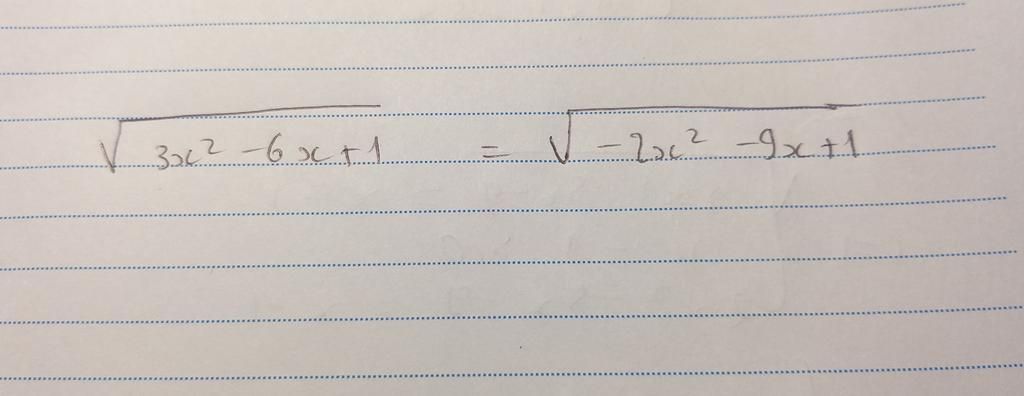 √(3x² - 6x + 1) = √(-2x² - 9x + 1)